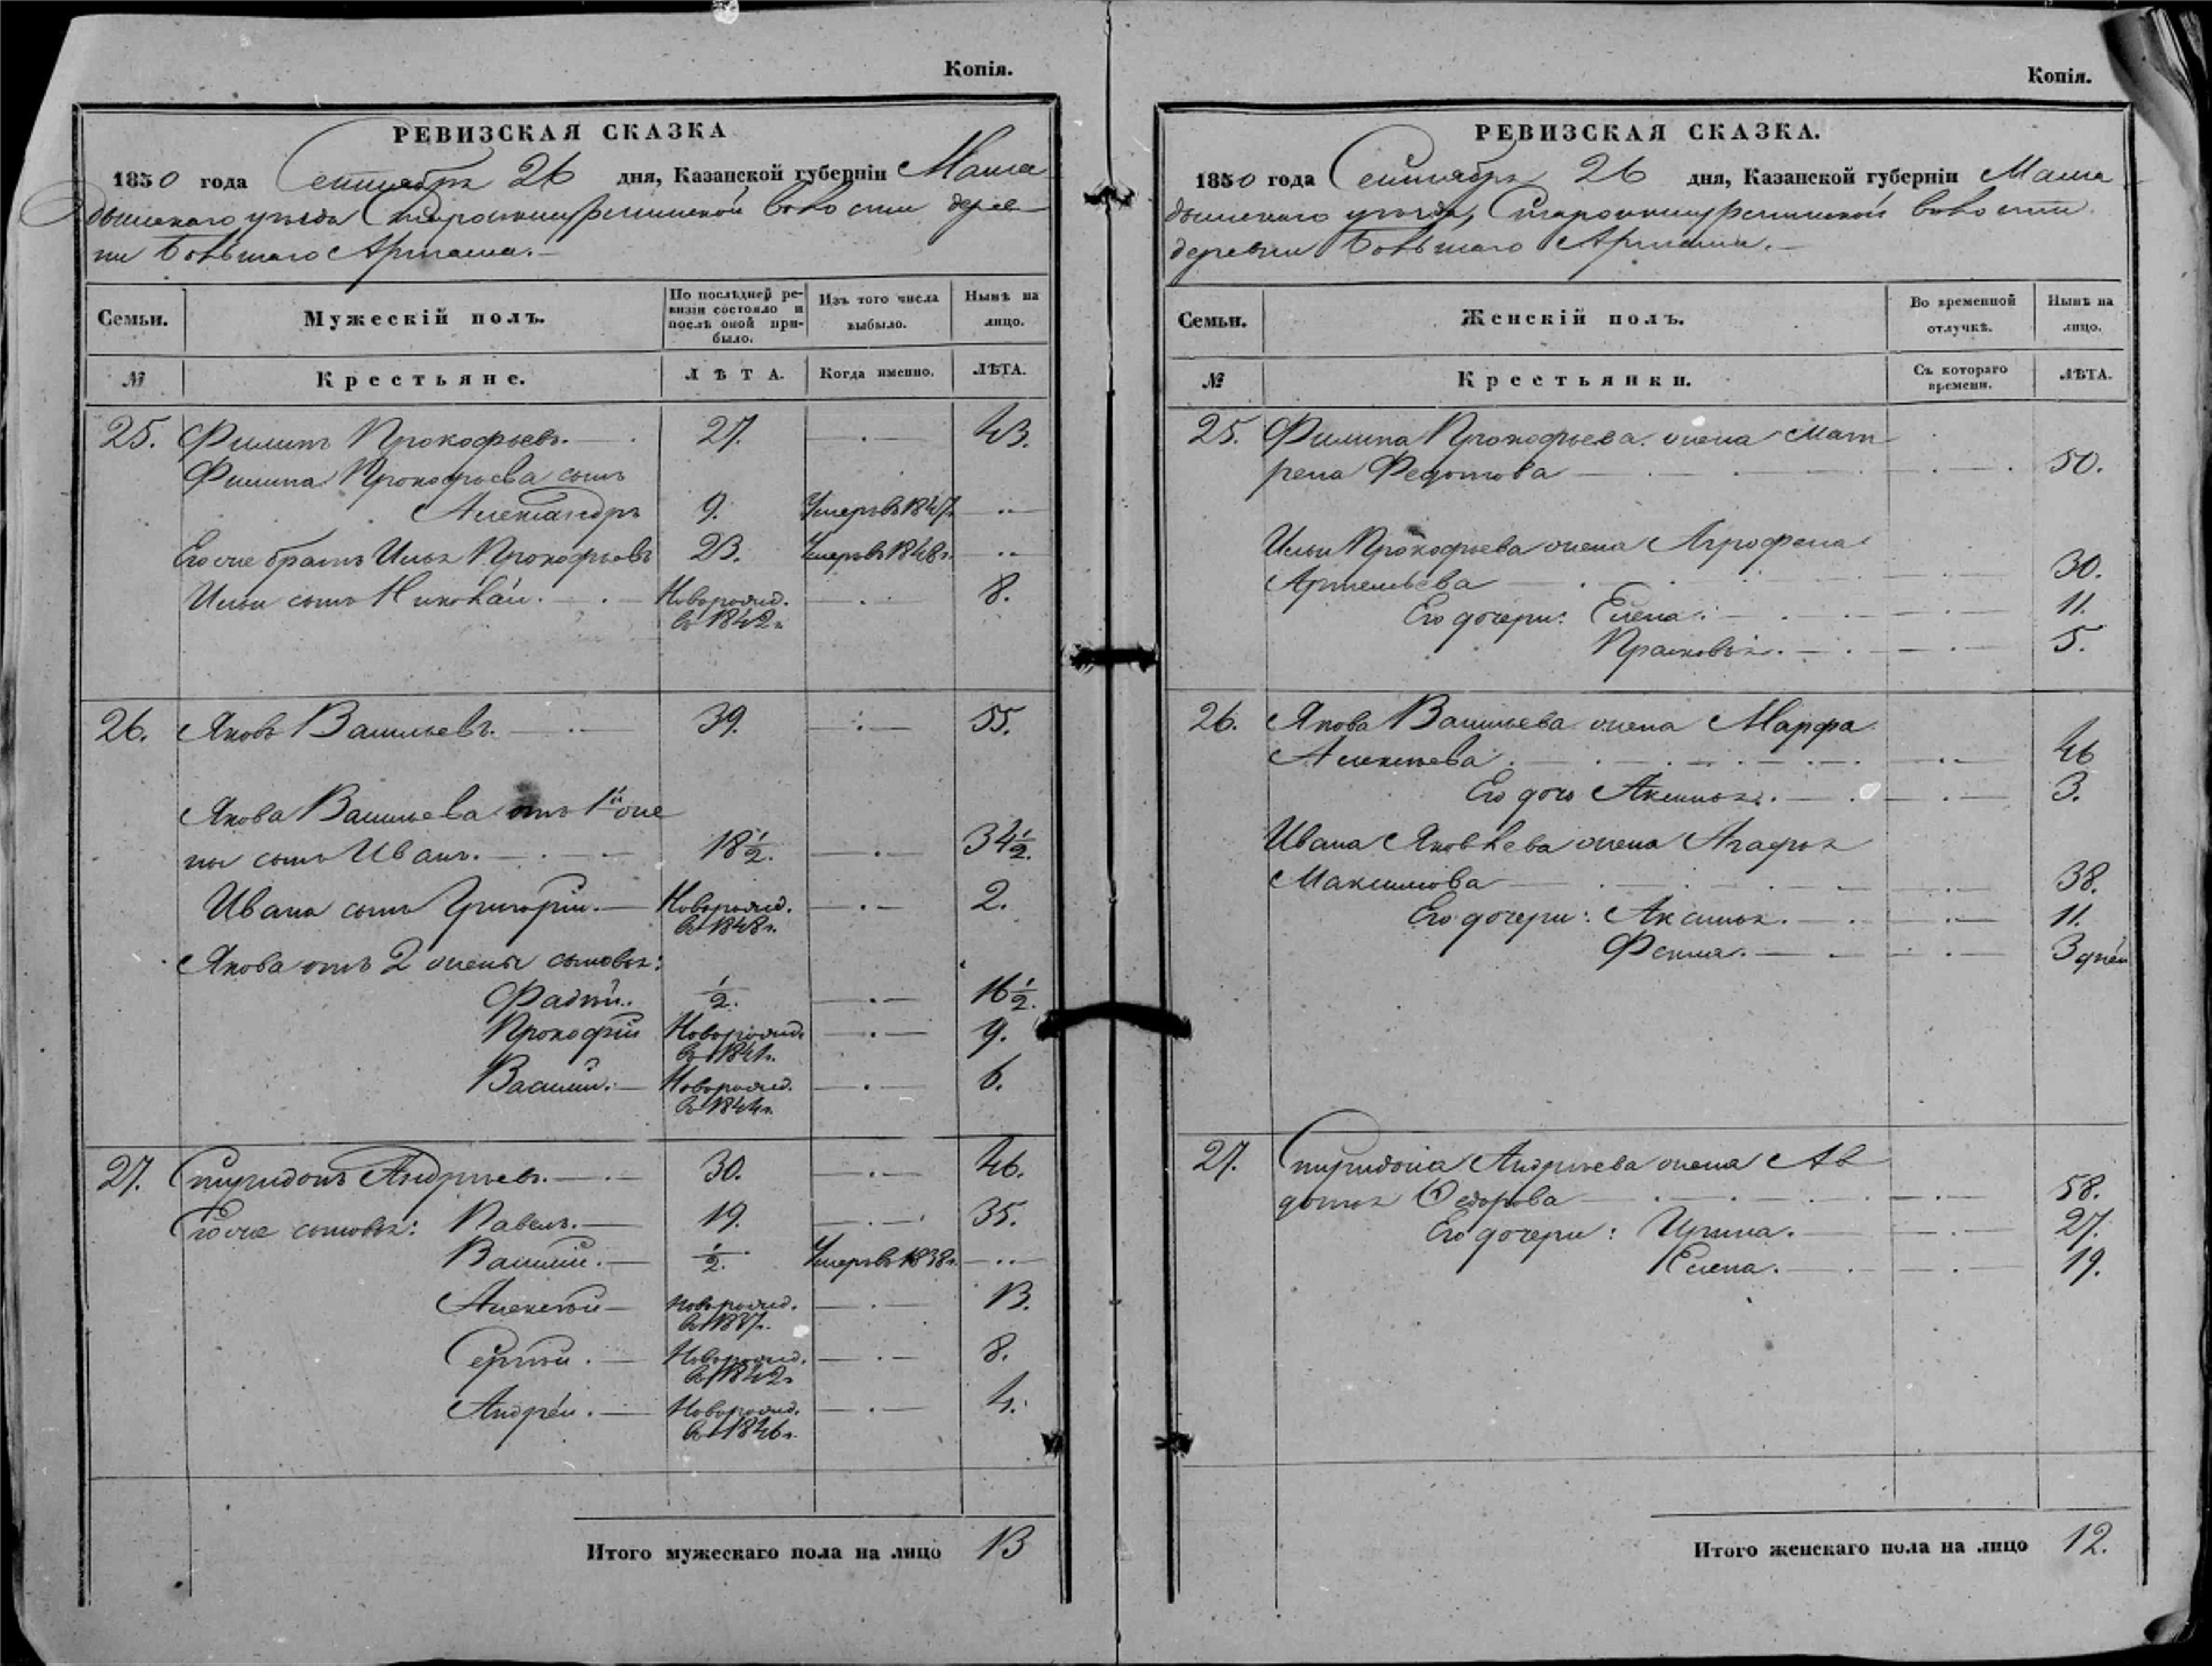 Копія.
РЕВИЗСКАЯ СКАЗКА
1850 года Сентября 26 дня, Казанской губерніи Мама
дышскаго уѣзда Старо волости дерев
ни Большаго Арташа.
Семьи. Мужескій полъ. По послѣдней ре-визіи состояло и послѣ оной при-было. Изъ того числа выбыло. Нынѣ на лицо.
№ Крестьяне. ЛѢТА. Когда именно. ЛѢТА.
25. Филипъ Прокофьевъ. 27. 43.
Филипа Прокофьева сынъ
Александръ 9. Умеръ въ 1847.
Его же братъ Илья Прокофьевъ 23. Умеръ въ 1848 г.
Ильи сынъ Николай. Новорожд. въ 1842 г. 8.
26. Яковъ Васильевъ. 39. 55.
Якова Васильева отъ 1й же
ны сынъ Иванъ. 18 1/2. 34 1/2.
Ивана сынъ Григорій. Новорожд. въ 1848 г. 2.
Якова отъ 2 жены сыновья:
Фадѣй. 1/2. 16 1/2.
Прокофій Новорожд. въ 1841 г. 9.
Василій. Новорожд. въ 1844 г. 6.
27. Спиридонъ Андреевъ. 30. 46.
Его же сыновья: Павелъ. 19. 35.
Василій. 1/2. Умеръ въ 1838 г.
Алексѣй Новорожд. въ 1837 г. 13.
Сергѣй. Новорожд. въ 1842 г. 8.
Андрей. Новорожд. въ 1846 г. 4.
Итого мужескаго пола на лицо 13
Копія.
РЕВИЗСКАЯ СКАЗКА.
1850 года Сентября 26 дня, Казанской губерніи Мама
дышскаго уѣзда, Старо волости
деревни Большаго Арташа.
Семьи. Женскій полъ. Во временной отлучкѣ. Нынѣ на лицо.
№ Крестьянки. Съ котораго времени. ЛѢТА.
25. Филипа Прокофьева жена Мат
рена Федотова 50.
Ильи Прокофьева жена Агрофена
Артемьева 30.
Его дочери: Елена. 11.
Прасковья. 5.
26. Якова Васильева жена Марфа
Алексѣева. 46
Его дочь Аксинья. 3.
Ивана Яковлева жена Агафья
Максимова 38.
Его дочери: Аксинья. 11.
Фекла. 3 дней
27. Спиридона Андреева жена Ав
дотья Ѳедорова 58.
Его дочери: Ирина. 27.
Елена. 19.
Итого женскаго пола на лицо 12.